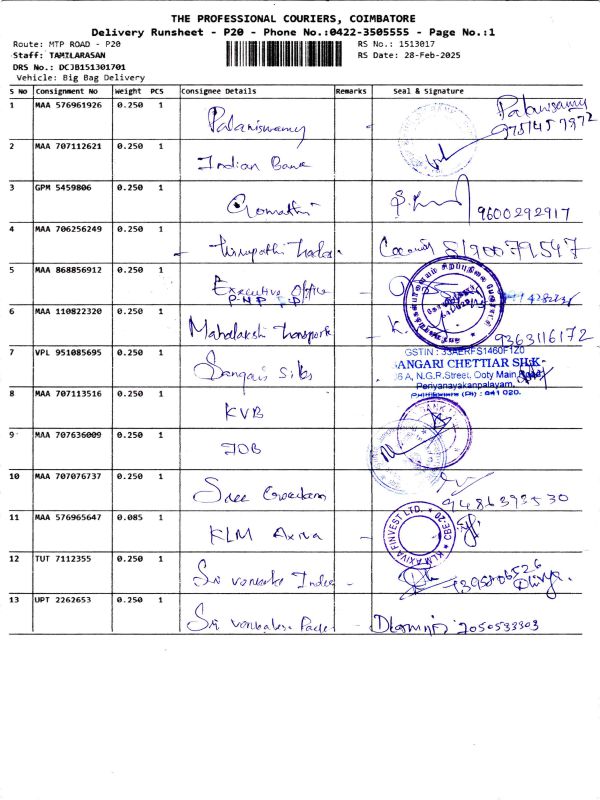 THE PROFESSIONAL COURIERS, COIMBATORE
Delivery Runsheet - P20 - Phone No.:0422-3505555 - Page No.:1
Route: MTP ROAD - P20 RS No.: 1513017
Staff: TAMILARASAN RS Date: 28-Feb-2025
DRS No.: DCJB151301701
Vehicle: Big Bag Delivery
S No Consignment No Weight PCS Consignee Details Remarks Seal & Signature
1 MAA 576961926 0.250 1 Palaniswamy Palaniswamy
2 MAA 707112621 0.250 1 Indian Bank
3 GPM 5459806 0.250 1 Gomathi 9600292917
4 MAA 706256249 0.250 1
5 MAA 868856912 0.250 1 Executive Office
6 MAA 110822320 0.250 1 Mahalaksh Transport K. 9363116172
7 VPL 951085695 0.250 1 GSTIN : 33AERFS1460F1Z0
ANGARI CHETTIAR SILK
6 A, N.G.R.Street, Ooty Main
Periyanayakanpalayam,
641 020.
8 MAA 707113516 0.250 1 KVB
9 MAA 707636009 0.250 1 IOB
10 MAA 707076737 0.250 1 Sree
11 MAA 576965647 0.085 1 KLM Axiva KLM AXIVA FINVEST LTD. CBE-20
12 TUT 7112355 0.250 1 Sri Divya.
13 UPT 2262653 0.250 1 Sri 7050533303